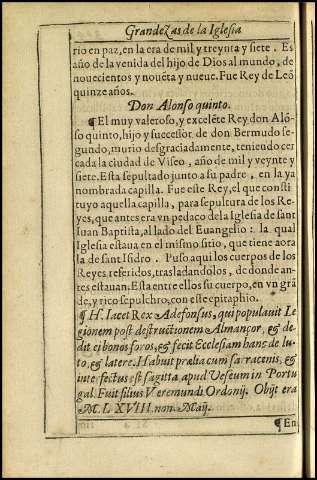 Grandezas de la Iglesia
rio en paz, en la era de mil y treynta y siete. Es
año de la venida del hijo de Dios al mundo, de
nouecientos y nouēta y nueue. Fue Rey de Leō
quinze años.
Don Alonso quinto.
¶ El muy valeroso, y excelēte Rey don Alō-
so quinto, hijo y successor de don Bermudo se-
gundo, murio desgraciadamente, teniendo cer
cada la ciudad de Viseo, año de mil y veynte y
siete. Esta sepultado junto a su padre, en la ya
nombrada capilla. Fue este Rey, el que consti
tuyo aquella capilla, para sepultura de los Re-
yes, que antes era vn pedaço de la Iglesia de sant
Iuan Baptista, al lado del Euangelio: la qual
Iglesia estaua en el mismo sitio, que tiene aora
la de sant Isidro. Puso aqui los cuerpos de los
Reyes referidos, trasladandolos, de donde an-
tes estauan. Esta entre ellos su cuerpo, en vn grā
de, y rico sepulchro, con este epitaphio.
¶ H. Iacet Rex Adefonsus, qui populauit Le
gionem post destructionem Almançor, & de-
dit ei bonos foros, & fecit Ecclesiam hanc de lu-
to, & latere. Habuit prælia cum sarracenis, &
interfectus est sagitta apud Veseum in Portu
gal. Fuit filius Veremundi Ordonij. Obijt era
M. LXVIII. non. Maij.
¶ En